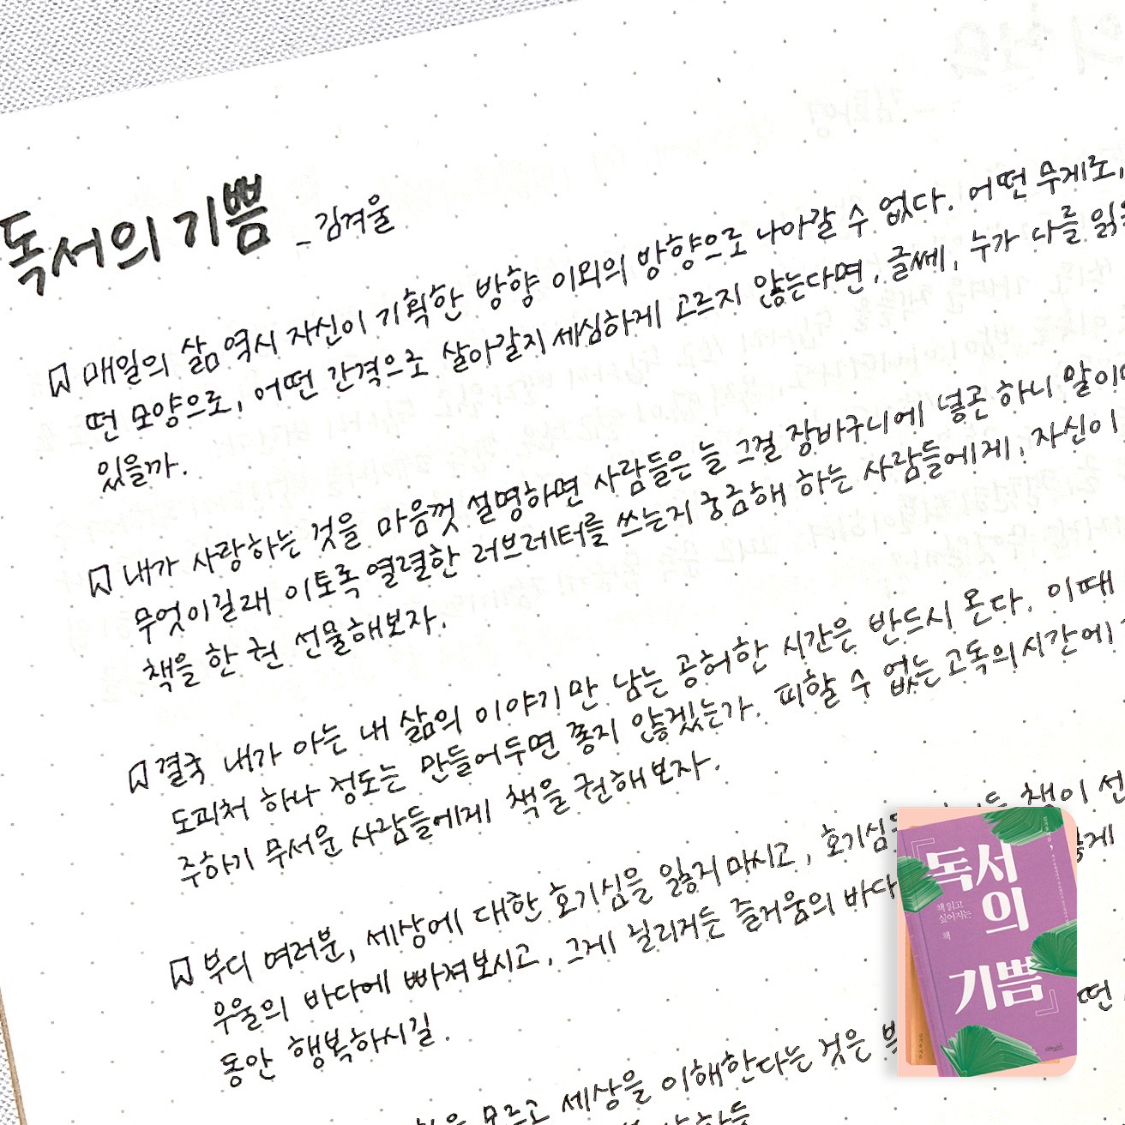 독서의 기쁨 - 김겨울
매일의 삶 역시 자신이 기획한 방향 이외의 방향으로 나아갈 수 없다. 어떤 무게로,
떤 모양으로, 어떤 간격으로 살아갈지 세심하게 고르지 않는다면, 글쎄, 누가 나를
있을까.
내가 사랑하는 것을 마음껏 설명하면 사람들은 늘 그걸 장바구니에 넣곤 하니 말이
무엇이길래 이토록 열렬한 러브레터를 쓰는지 궁금해 하는 사람들에게, 자신이
책을 한 권 선물해보자.
결국 내가 아는 내 삶의 이야기만 남는 공허한 시간은 반드시 온다. 이때
도피처 하나 정도는 만들어두면 좋지 않겠는가. 피할 수 없는 고독의 시간에
주하기 무서운 사람들에게 책을 권해보자.
부디 여러분, 세상에 대한 호기심을 잃지 마시고, 호기심 책이 선
우울의 바다에 빠져보시고, 그게 질리거든 즐거움의 바다 게
동안 행복하시길.
모르고 세상을 이해한다는 것은 떤
『독서
의
기쁨』
책 읽고
싶어지는
책